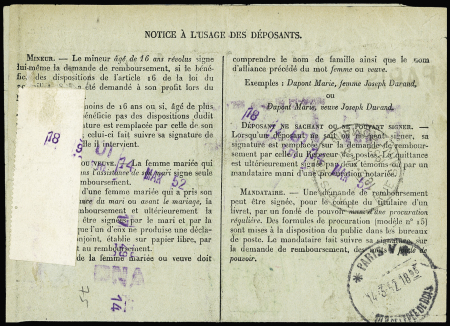 NOTICE À L'USAGE DES DÉPOSANTS.
MINEUR. — Le mineur âgé de 16 ans révolus signe
lui-même la demande de remboursement, si le béné-
fic des dispositions de l'article 16 de la loi du
a été demandé à son profit lors du
moins de 16 ans ou si, âgé de plus
bénéficie pas des dispositions dudit
ature est remplacée par celle de son
celui-ci fait suivre sa signature de
le il intervient.
OU VEUVE. — La femme mariée qui
l'assistance de mari signe seule
remboursement.
d'une femme mariée qui a pris son
du mari ou avant le mariage, la
remboursement et ultérieurement la
être signée par le mari et par la
que l'un d'eux ne produise une décla-
conjoint, établie sur papier libre, par
au remboursement.
de la femme mariée ou veuve doit
comprendre le nom de famille ainsi que le nom
d'alliance précédé du mot femme ou veuve.
Exemples : Dupont Marie, femme Joseph Durand,
ou
Dupont Marie, veuve Joseph Durand.
DÉPOSANT NE SACHANT OU NE POUVANT SIGNER. —
Lorsqu'un déposant ne sait ou ne peut signer, sa
signature est remplacée, sur la demande de rembour-
sement par celle du Receveur des postes. La quittance
est ultérieurement signée par deux témoins ou par un
mandataire muni d'une procuration notariée.
MANDATAIRE. — Une demande de remboursement
peut être signée, pour le compte du titulaire d'un
livret, par un fondé de pouvoir muni d'une procuration
régulière. Des formules de procuration (modèle n° 15)
sont mises à la disposition du public dans les bureaux
de poste. Le mandataire fait suivre sa signature, sur
la demande de remboursement, des mots fondé de
pouvoir.
18
9
01
14
MAR 52
18
CNA
14
75
PARIS VI